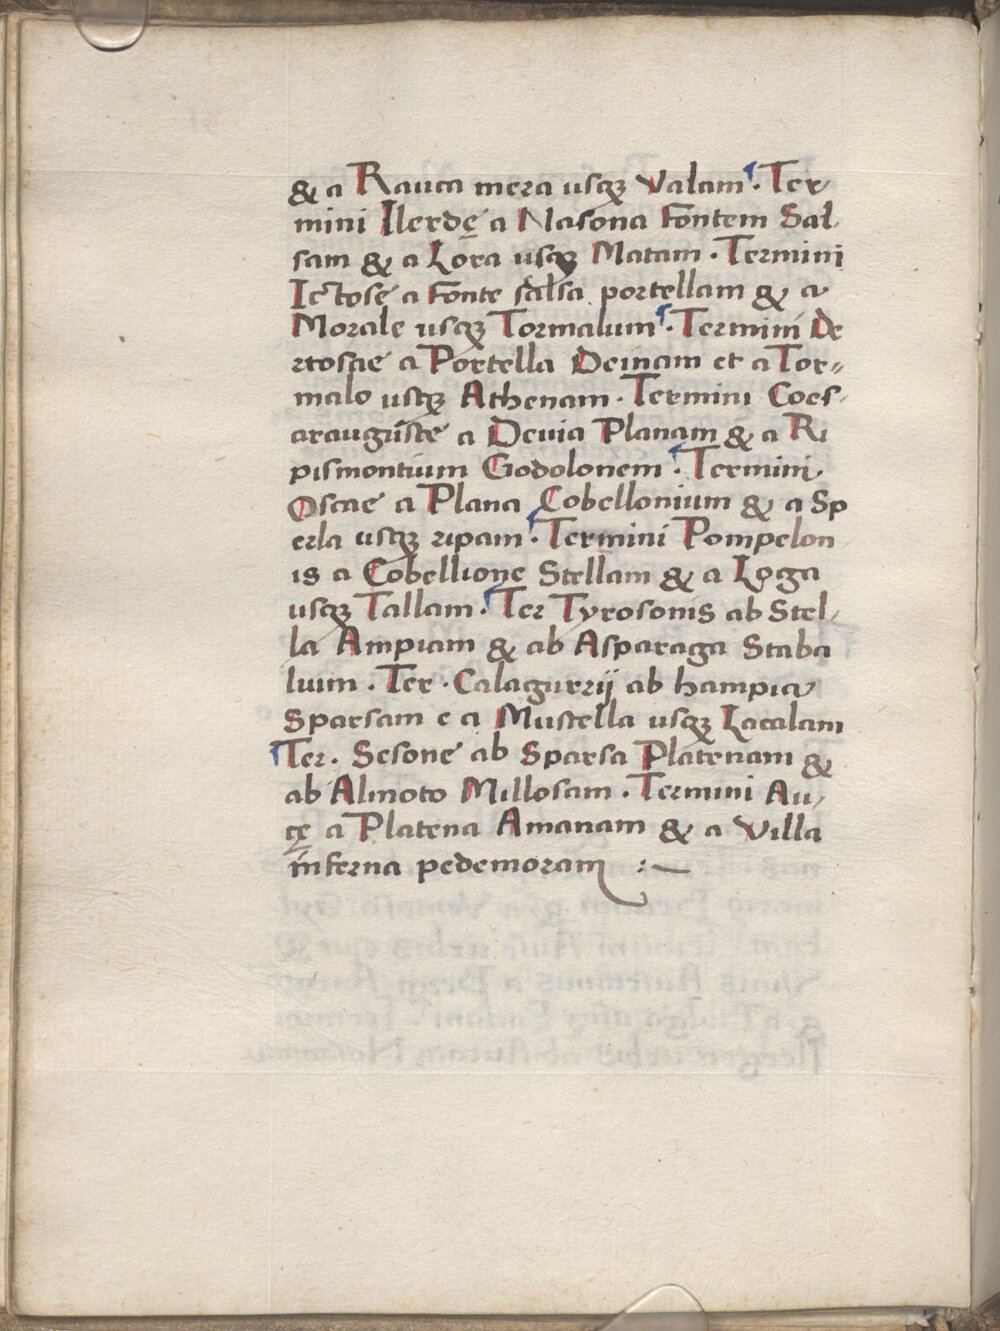 & a Rauca mera usqꝫ Valam . Ter-
mini Ilerdę a Nasona Fontem Sal-
sam & a Lora usqꝫ Matam . Termini
Ictose a Fonte salsa portellam & a
Morale usqꝫ Tormalum . Termini De
rtosae a Portella Deinam et a Tor=
malo usqꝫ Athenam . Termini Coes-
araugustę a Deuia Planam & a Ri
pismontium Godolonem . Termini
Oscae a Plana Cobellonium & a Sp
erla usqꝫ ripam . Termini Pompelon
is a Cobellione Stellam & a Loga
usqꝫ Tallam . Ter Tyrosonis ab Stel-
la Ampiam & ab Asparaga Staba
luim . Ter . Calagurrij ab hampia
Sparsam e a Mustella usqꝫ Lacalam
Ter . Sesone ab Sparsa Platenam &
ab Almoto Millosam . Termini Au-
cę a Platena Amanam & a Villa
inferna pedemoram :~